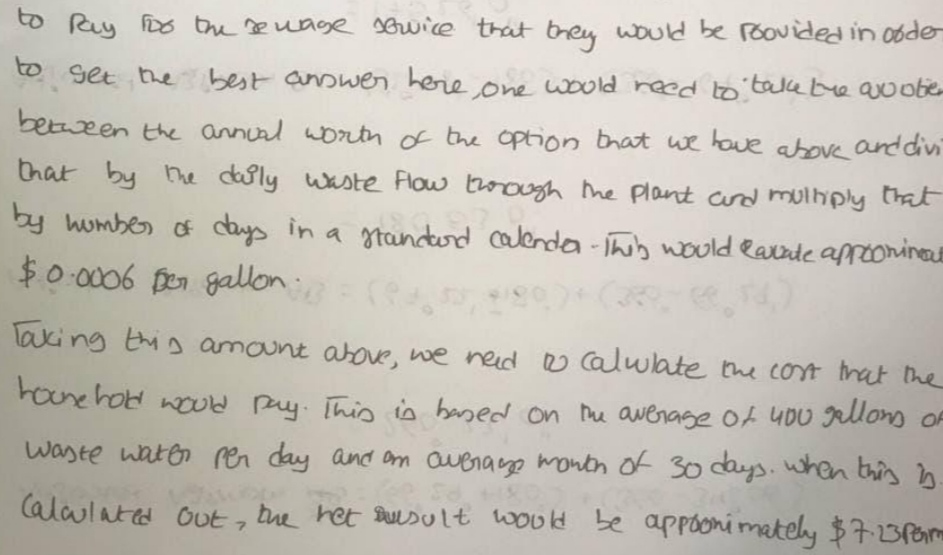 to Pay for the sewage service that they would be provided in order
to get the best answer here, one would need to take the
between the annual worth of the option that we have above and divi
that by the daily waste flow through the plant and multiply that
by number of days in a standard calender. This would
$0.0006 per gallon.
Taking this amount above, we need to calculate the cost that the
household would pay. This is based on the average of 400 gallons of
waste water per day and an average month of 30 days. when this is
Calculated out, the net result would be approximately $7.23 per m